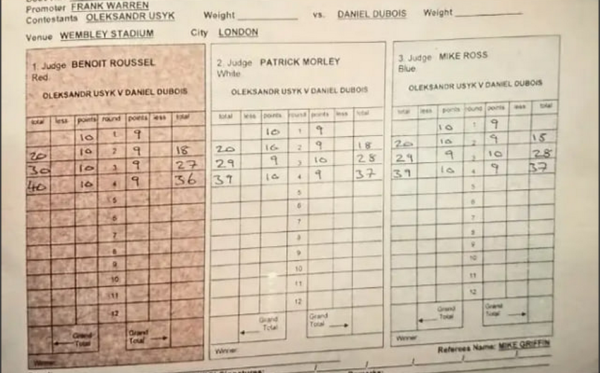 Promoter FRANK WARREN
Contestants OLEKSANDR USYK Weight vs. DANIEL DUBOIS Weight
Venue WEMBLEY STADIUM City LONDON
1. Judge BENOIT ROUSSEL
Red
OLEKSANDR USYK V DANIEL DUBOIS
total less points round points less total
10 1 9
20 10 2 9 18
30 10 3 9 27
40 10 4 9 36
5
6
7
8
9
10
11
12
Grand Total Grand Total
Winner:
2. Judge PATRICK MORLEY
White
OLEKSANDR USYK V DANIEL DUBOIS
total less points round points less total
10 1 9
20 10 2 9 18
29 9 3 10 28
39 10 4 9 37
5
6
7
8
9
10
11
12
Grand Total Grand Total
Winner:
3. Judge MIKE ROSS
Blue
OLEKSANDR USYK V DANIEL DUBOIS
total less points round points less total
10 1 9
20 10 2 9 18
29 9 3 10 28
39 10 4 9 37
5
6
7
8
9
10
11
12
Grand Total Grand Total
Referees Name: MIKE GRIFFIN